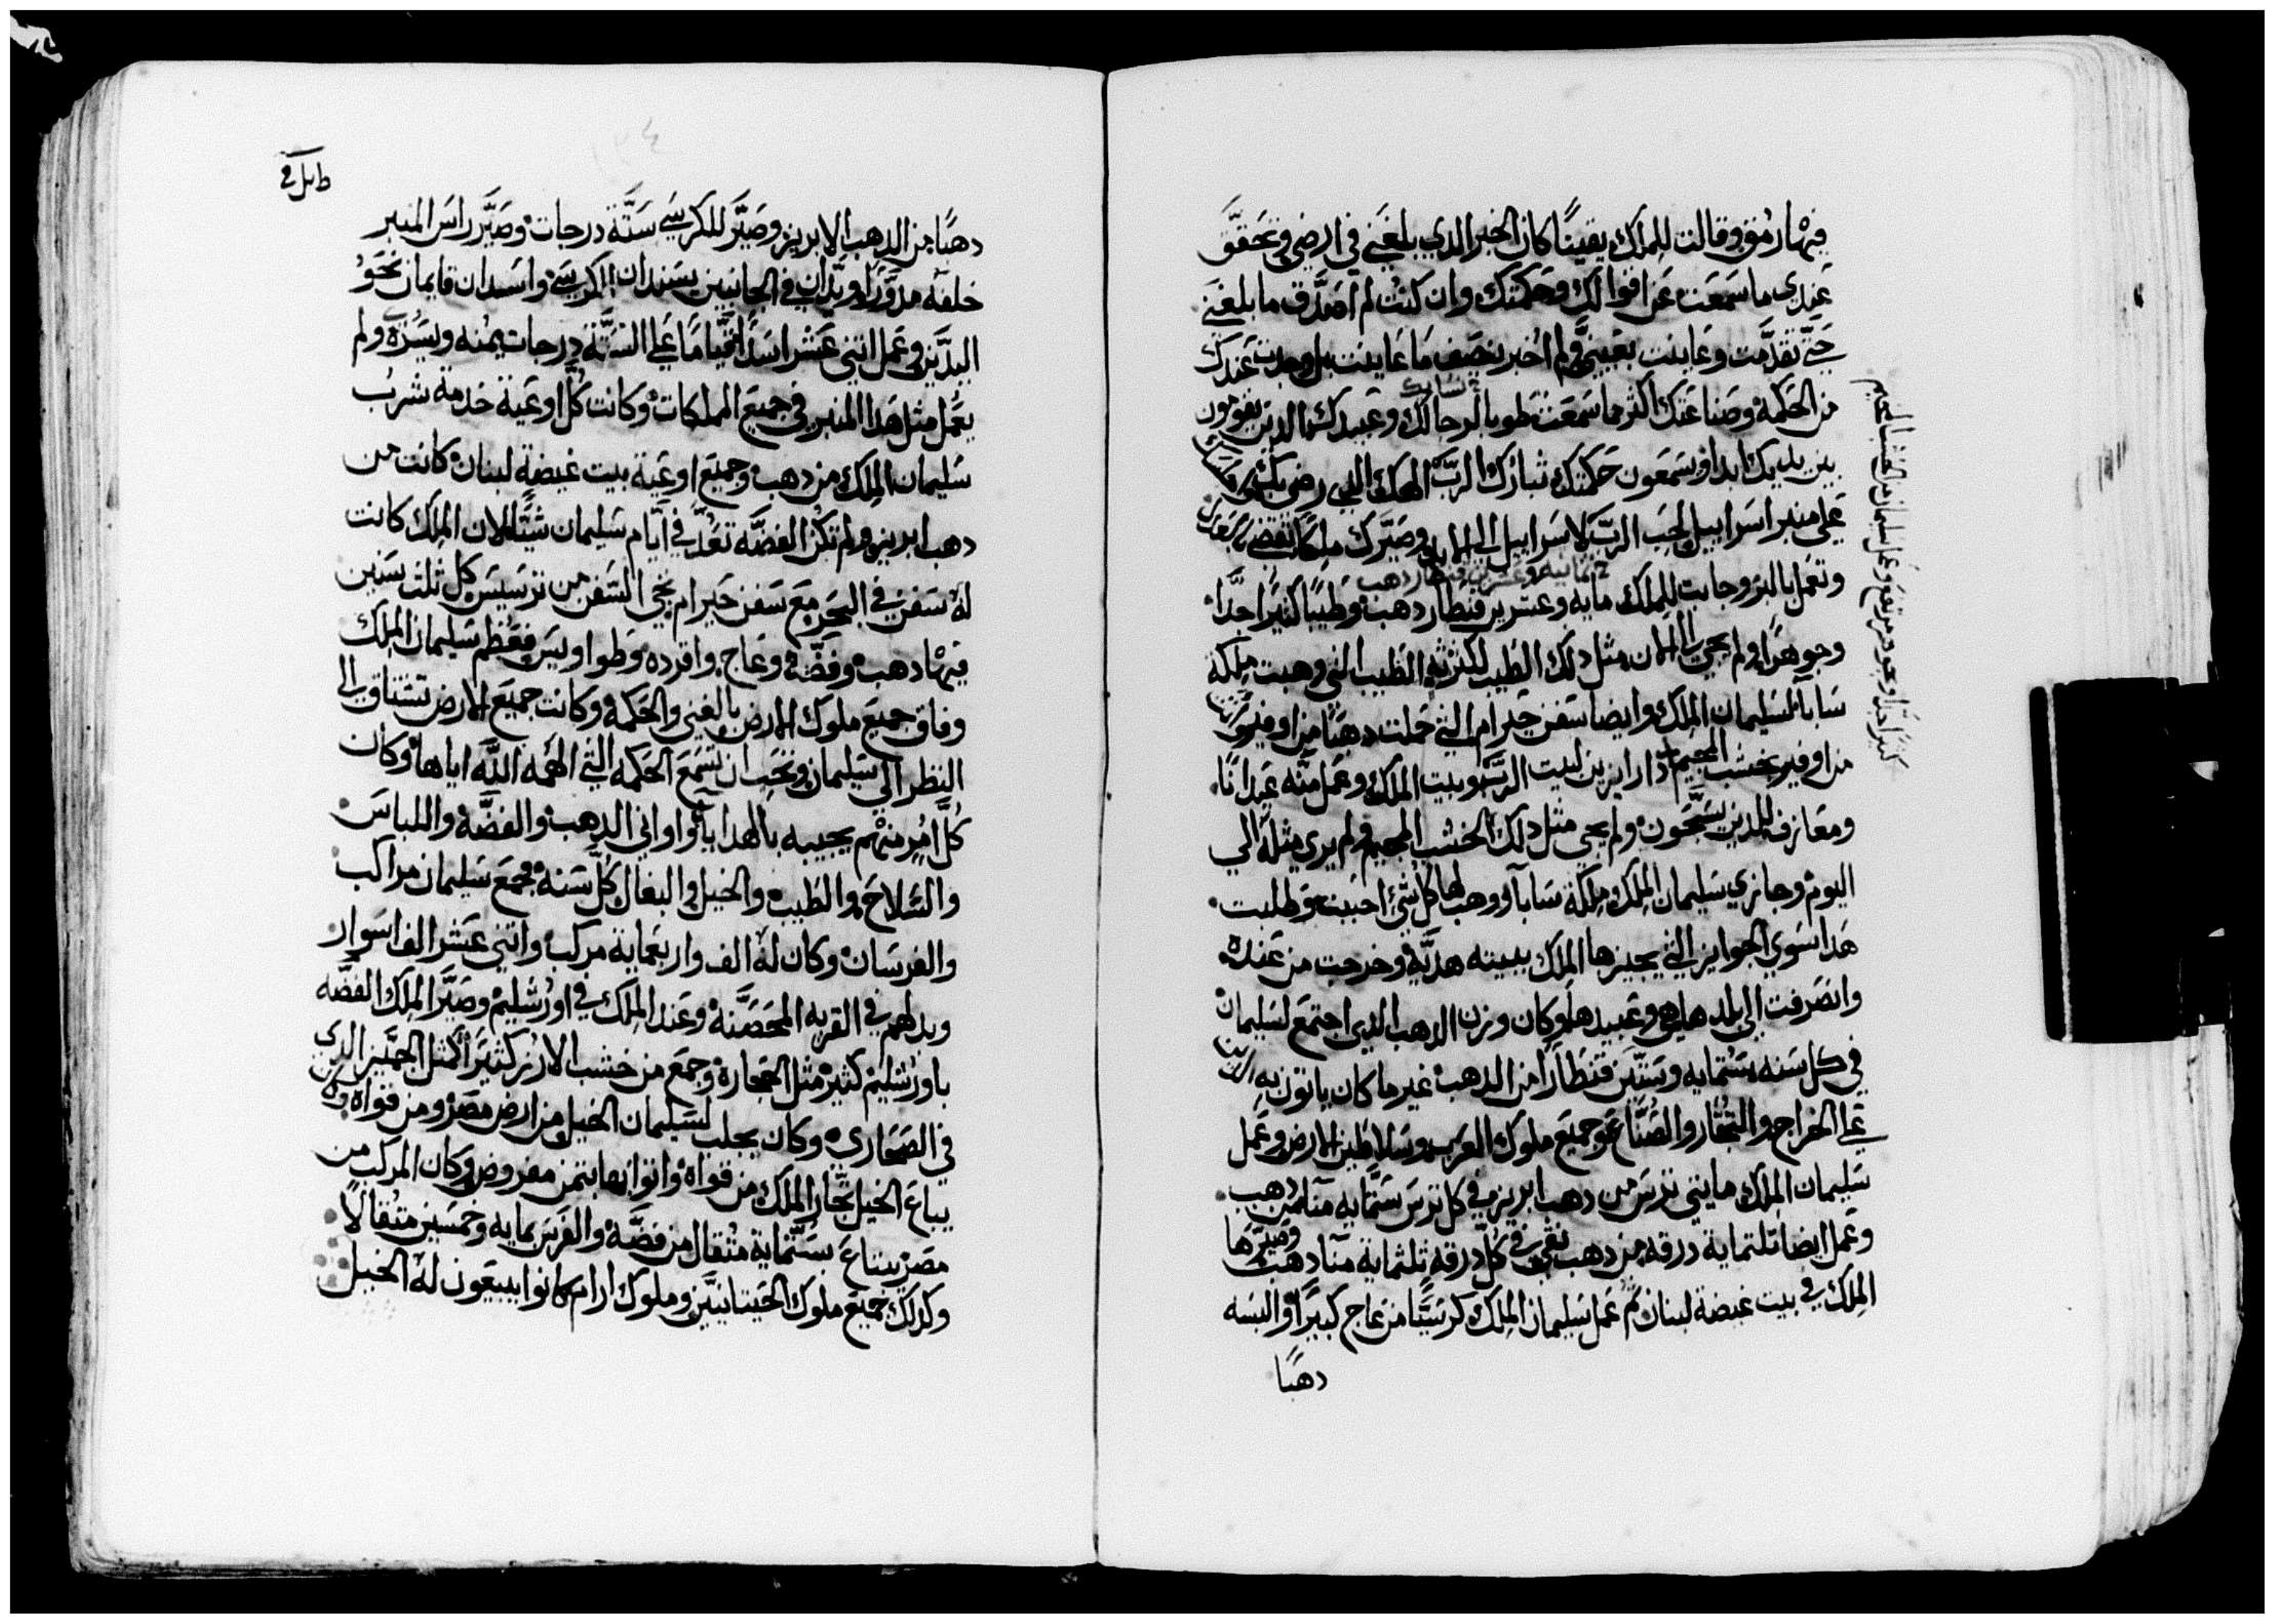 فيها رمق وقالت للملك يقينًا كان الخبر الدي بلغني في ارضي وتحقق
عندي ما سمعت عن اقوالك وحكمتك وان كنت لم اصدق ما بلغني
حتي تقدمت وعاينت بعيني ولم اخبر بنصف ما عاينت بل وجدت عندك
من الحكمة وصناعتك اكثر مما سمعت طوبا لرجالك وعبيدك الدين يقومون
نسايك
بين يديك ابدا ويسمعون حكمتك تبارك الرب الهك الدي رضي بك
علي منبر اسراييل لحب الرب لاسراييل الي الابد وصيرك ملكًا تقضي بعدل
وتعمل بالبر وجابت للملك مايه وعشرين قنطار دهب وطيبًا كثيرًا جدًا
وجوهرًا ولم يجي الي الان مثل دلك الطيب لكثرته الطيب التي وهبت ملكة
سابا لسليمان الملك وايضا سفن حيرام التي حملت دهبًا من اوفير
من اوفير بخشب دارابزين لبيت الرب وبيت الملك وعمل منه عيدانًا
ومعازف للدين يسبحون ولم يجي مثل دلك الخشب ولم يري مثله الي
اليوم وجازي سليمان الملك ملكة سابا ووهب لها كل شي احبت وطلبت
هدا سوي الجوايز التي يجيزها الملك ببيته هدية وخرجت من عنده
وانصرفت الي بلدها هي وعبيدها وكان وزن الدهب الدي اجتمع لسليمان
في كل سنه ستمايه وستين قنطارًا من الدهب غير ما كان ياتون به
علي الخراج والتجار والصناع وجميع ملوك العرب وسلاطين الارض وعمل
سليمان الملك مايتي ترس من دهب ابريز في كل ترس ستمايه منا من دهب
وعمل ايضا تلتماية درقه من دهب نقي في كل درقه تلتماية منا دهب وصيرها
الملك في بيت غيضة لبنان ثم عمل سليمان الملك كرسيًا من عاج كبيرًا والبسه
دهبًا
دهبًا من الدهب الابريز وصير للكرسي ستة درجات وصير راس المنبر
خلفه مدورًا ويدان في الجانبين يسندان الكرسي واسدان قايمان نحو
اليدين وعمل اثني عشر اسدًا قيامًا علي الستة درجات يمنه ويسره ولم
يعمل مثل هدا المنبر في جميع المملكات وكانت كل اوعية خدمة شرب
سليمان الملك من دهب وجميع اوعية بيت غيضة لبنان كانت من
دهب ابريز ولم تكن الفضة تعد في ايام سليمان شيًا لان الملك كانت
له سفن في البحر مع سفن حيرام تجي السفن من ترسيس كل ثلث سنين
فيها دهب وفضة وعاج واقرده وطواويس فعظم سليمان الملك
وفاق جميع ملوك الارض بالغني والحكمة وكانت جميع الارض تشتاق الي
النظر الي سليمان وتحب ان تسمع الحكمه التي الهمه الله اياها وكان
كل امر منهم يجيبه بالهدايا واواني الدهب والفضة واللباس
والسلاح والطيب والخيل والبغال كل سنة وجمع سليمان مراكب
والفرسان وكان له الف واربعماية مركب واتني عشر الف اسوار
وبدلهم في القريه المحصنة وعند الملك في اورشليم وصير الملك الفضه
باورشليم كثير مثل الحجارة وجمع من خشب الارز كثيرًا كمثل الجميز الدي
في الصحاري وكان يجلب لسليمان الخيل من ارض مصر ومن قواه وكان
يباع الخيل تجار الملك من قواه واتوا بها بثمن مفروض وكان المركب من
مصر يبتاع بستماية مثقال من فضة والفرس بمايه وخمسين مثقالًا
وكدلك جميع ملوك الحيتانيين وملوك ارام كانوا يبيعون له الخيل